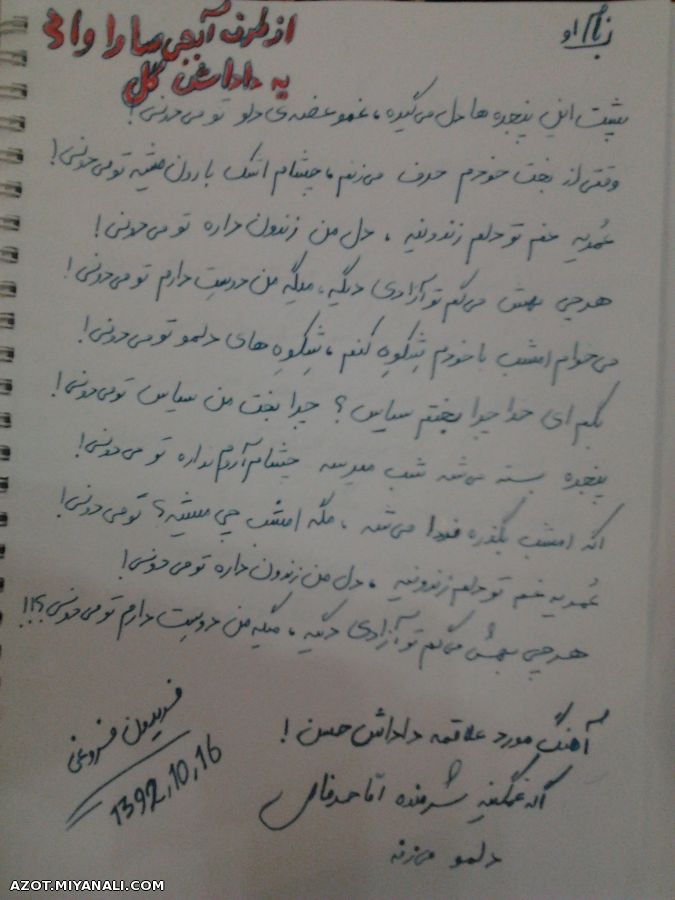 بنام او
از طرف آبجی سارا واسه
یه داداش گل
پشت این پنجره ها دل می گیره، غم و غصه ی دلو تو می دونی!
وقتی از بخت خودم حرف می زنم، چشام اشک بارون میشه تو می دونی!
عُمریه غم تو دلم زندونیه، دل من زندون داره تو می دونی!
هرچی بهش می گم تو آزادی دیگه، میگه من دوست دارم تو می دونی!
می خوام امشب با خودم شِکوِه کنم، شِکوِه های دلمو تو می دونی!
بگم ای خدا چرا بختم سیاس؟ چرا بخت من سیاس تو می دونی!
پنجره بسته می شه شب میرسه چشام آروم نداره تو می دونی!
اگه امشب بگذره فردا می شه، مگه امشب چی میشه؟ تو می دونی!
عُمریه غم تو دلم زندونیه، دل من زندون داره تو می دونی!
هرچی بهش می گم تو آزادی دیگه، میگه من دوست دارم تو می دونی؟!!
آهنگ مورد علاقه داداش حسن!
اگه غمگینه شرمنده آقا
دلمو می زنه
فریدون فروغی
1392,10,16
AZOT.MIYANALI.COM